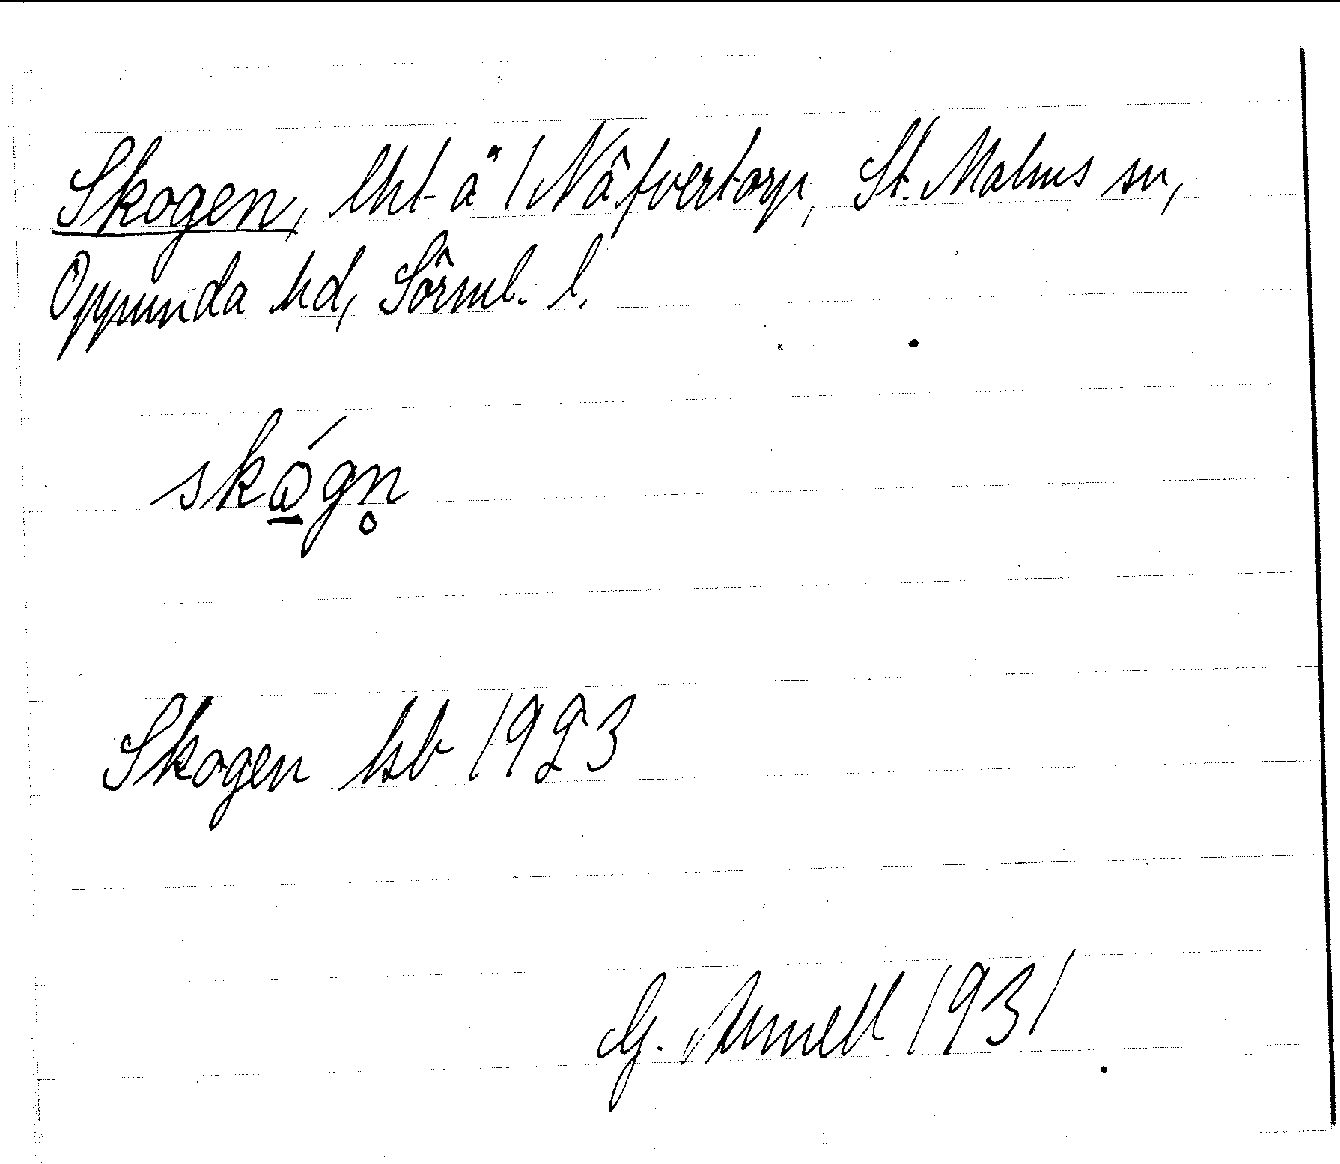 Skogen, lht å 1 Näfvertorp, St. Malms sn,
Oppunda hd, Sörml. l.
skǫ́gn̥
Skogen kb 1923
G. Arnell 1931